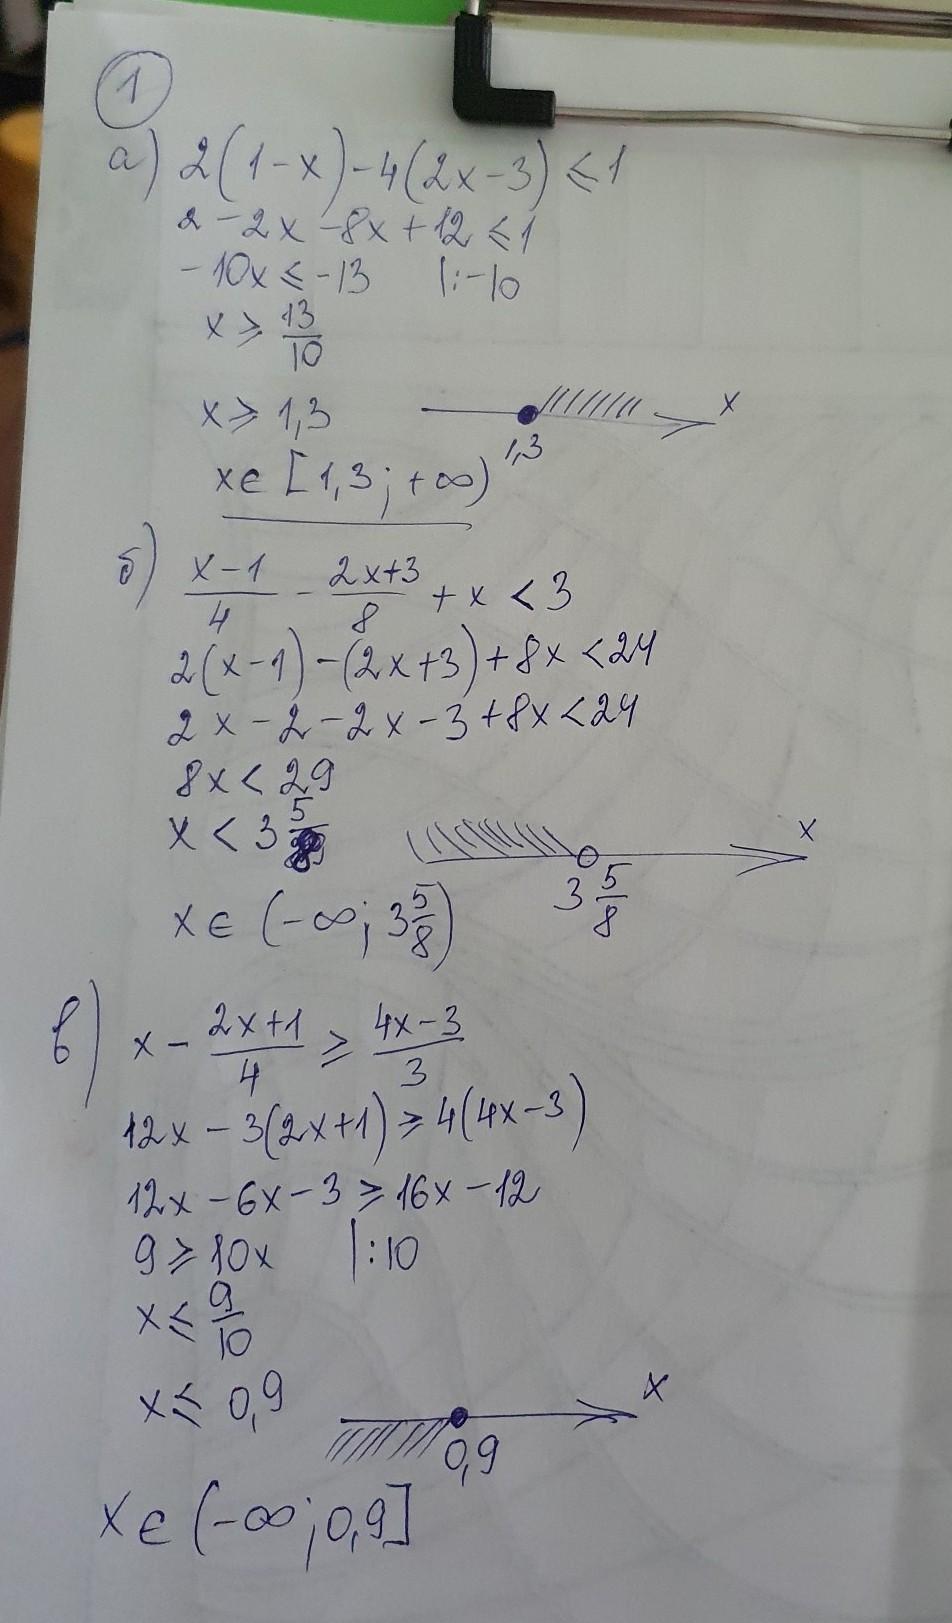 1
а) 2(1-x)-4(2x-3)≤1
2-2x-8x+12≤1
-10x≤-13 |:-10
x≥13/10
x≥1,3
1,3
x
x∈[1,3;+∞)
б) (x-1)/4 - (2x+3)/8 + x < 3
2(x-1)-(2x+3)+8x<24
2x-2-2x-3+8x<24
8x<29
x<3 5/8
3 5/8
x
x∈(-∞;3 5/8)
в) x - (2x+1)/4 ≥ (4x-3)/3
12x-3(2x+1)≥4(4x-3)
12x-6x-3≥16x-12
9≥10x |:10
x≤9/10
x≤0,9
0,9
x
x∈(-∞;0,9]